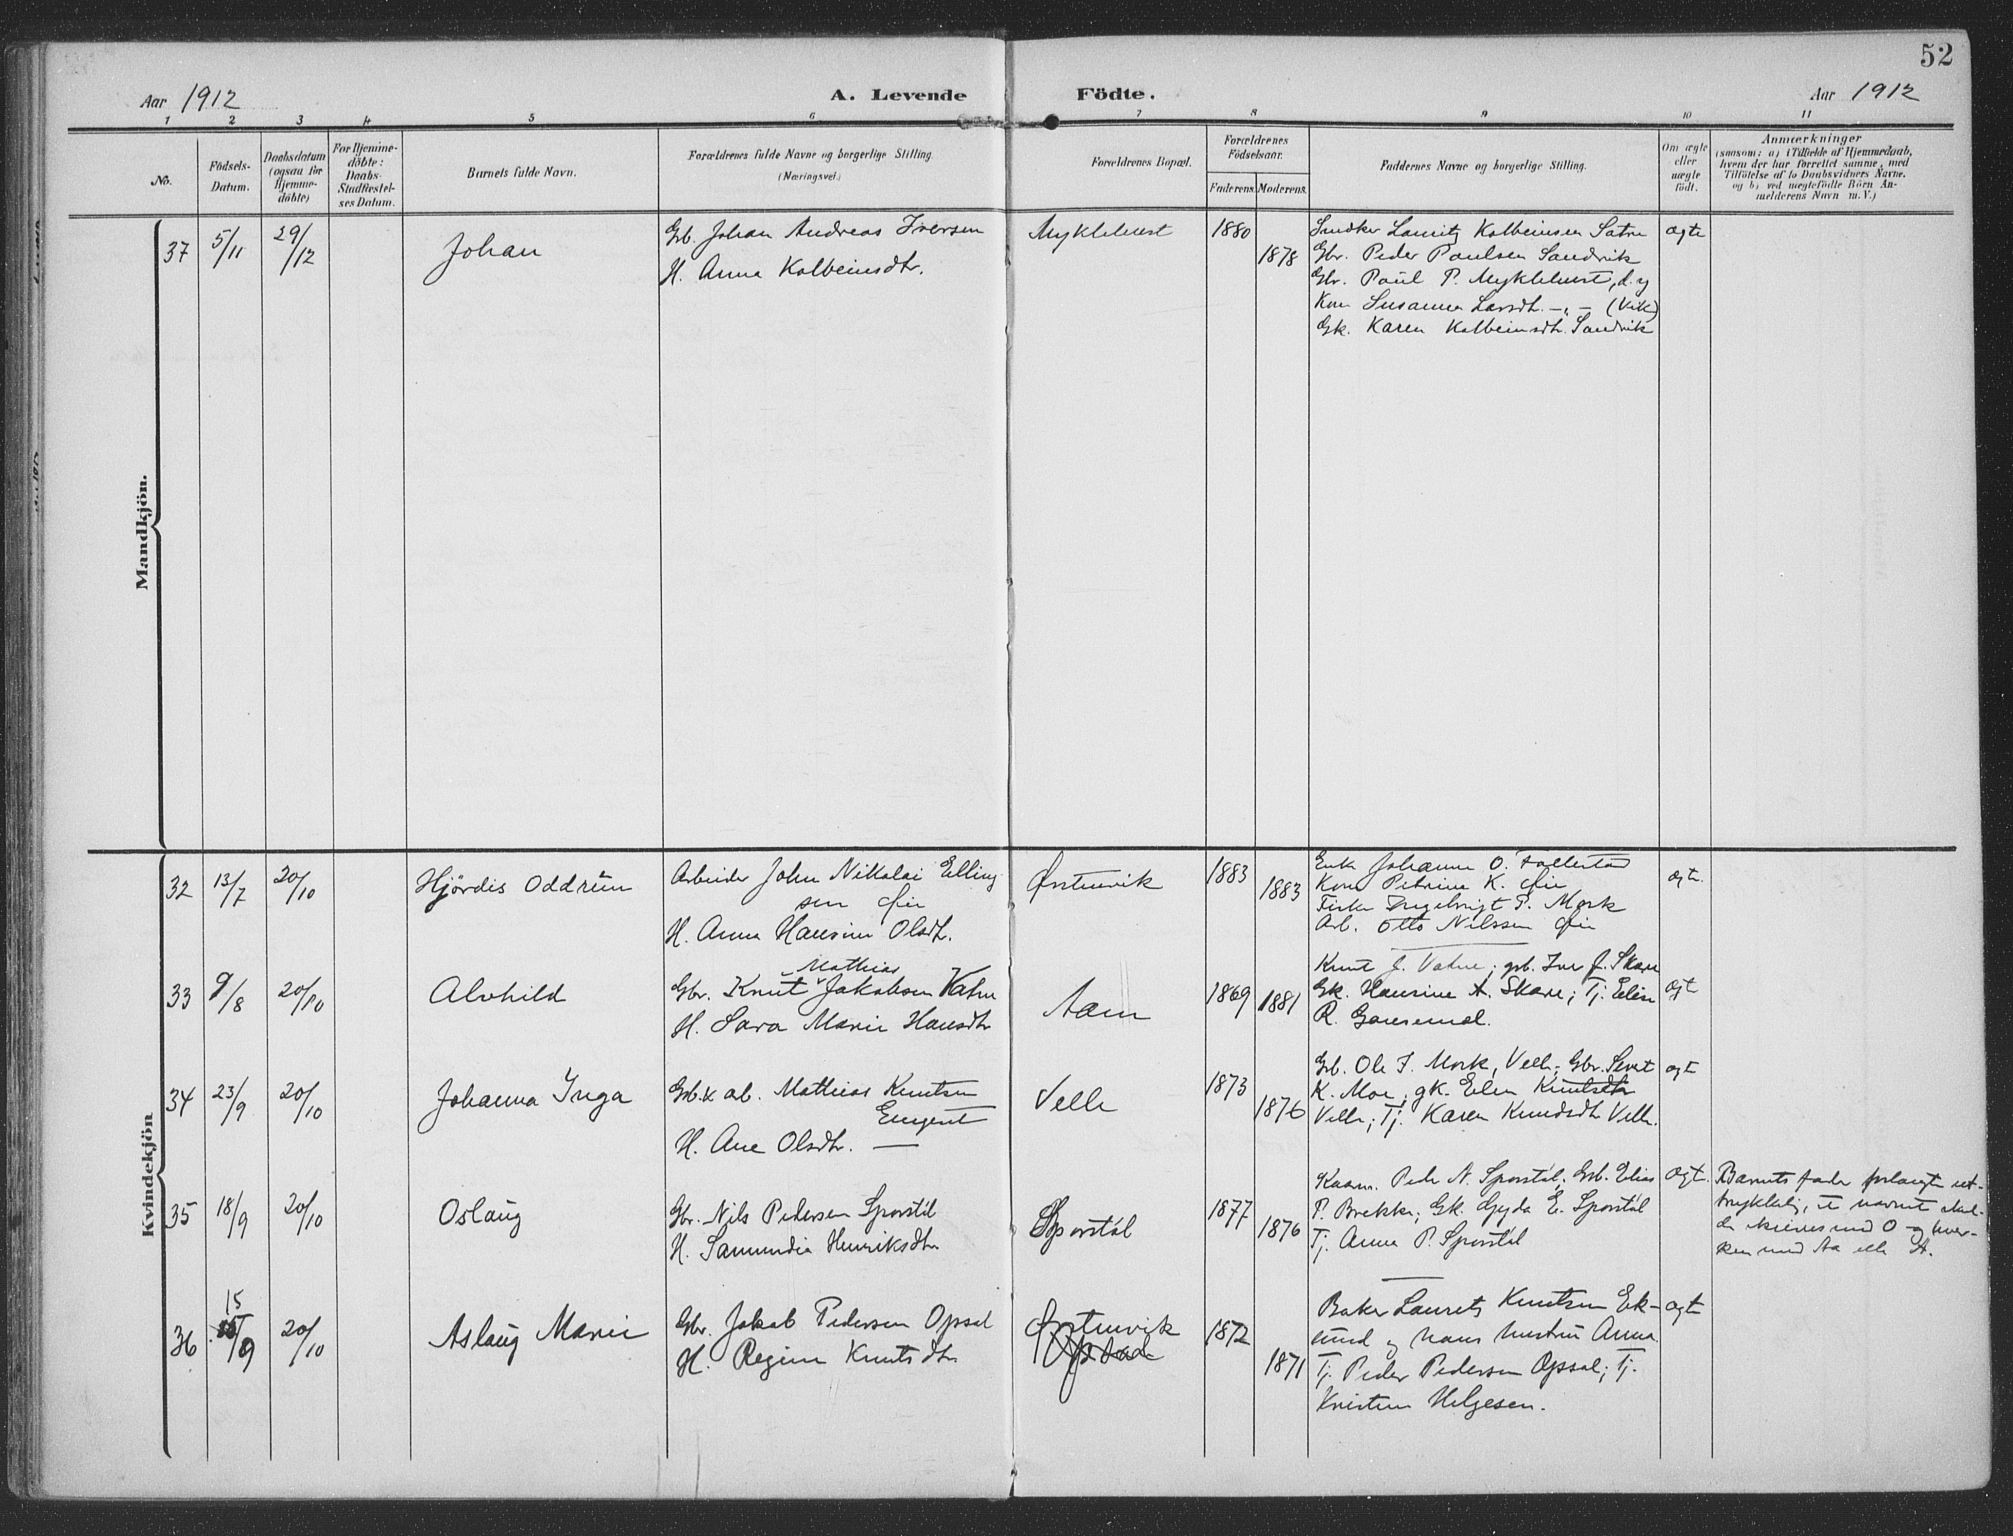 52
Aar 1912
A. Levende Födte.
Aar 1912
1 2 3 4 5 6 7 8 9 10 11
No.
Födsels-
Datum.
Daabsdatum
(ogsaa for
Hjemme-
döbte)
For Hjemme-
döbte:
Daabs-
Stadfæstel-
ses Datum.
Barnets fulde Navn.
Forældrenes fulde Navne og borgerlige Stilling.
(Næringsvei.)
Forældrenes Bopæl.
Forældrenes
Födselsaar.
Faderens. Moderens.
Faddernes Navne og borgerlige Stilling.
Om ægte
eller
uægte
födt.
Anmærkninger
(saasom: a) i Tilfælde af Hjemmedaab,
hvem der har forrettet samme, med
Tilföielse af to Daabsvidners Navne.
og b) ved uægtefödte Börn An-
melderens Navn m. V.)
Mandkjön.
37 5/11 29/12 Johan
Gb. Johan Andreas Iversen
H. Anna Kolbeinsdtr.
Myklebust 1880 1878
Lauritz Kolbeinsen Sætre
Gbr. Peder Paulsen Sandvik
Gbr. Paul P. Myklebust, d.y
Kone Susanna Larsdtr. -„- (Vik)
Gk. Karen Kolbeinsdtr. Sandvik
ægte
Kvindekjön
32 13/7 20/10 Hjördis Oddrün
Arbeider John Nikolai Elling-
sen
H. Anna Hansine Olsdtr.
Ørstenvik 1883 1883
Enke Johanne O.
Kone Petrine K.
Fisker Ingebrigt P. Mork
Arb. Otto Nilssen
ægte.
33 9/8 20/10 Alvhild
Mathias
Gbr. Knut Jakobsen Vatne
H. Sara Marie Hansdtr
Aam 1869 1881
Knut J. Vatne; gb. Iver J. Skare
Gk. Hansine A. Skare; Tj. Eline
R.
ægt
34 23/9 20/10 Johanna Inga
Gb. & ab. Mathias Knutsen
H. Ane Olsdtr. —
Velle 1873 1876
Gb. Ole I. Mork, Velle; Gbr. Sivert
K. Moe; gk. Elen Knutsdtr
Velle; Tj. Karen Knudsdtr Velle.
ægt
35 18/9 20/10 Oslaüg
Gbr. Nils Pedersen Sporstöl
H. Samundia Henriksdtr
Sporstöl 1877 1876
Peder N. Sporstöl; Gb. Elias
P. Brekke; Gk. Gyda E. Sporstöl
Tj. Anna P. Sporstöl
ægt.
Barnets fader forlangte ut-
trykkelig, at navnet skul-
de skrives med O og hver-
ken med Aa eller A.
36 15/9 20/10 Aslaüg Marie
Gbr. Jakob Pedersen Opsal
H. Regine Knutsdtr
Ørstenvik
1872 1871
Baker Laurits Knutsen Ek-
sund og hans hustru Anna
Tj. Peder Pedersen Opsal; Tj.
Kristine Helgesen.
ægt